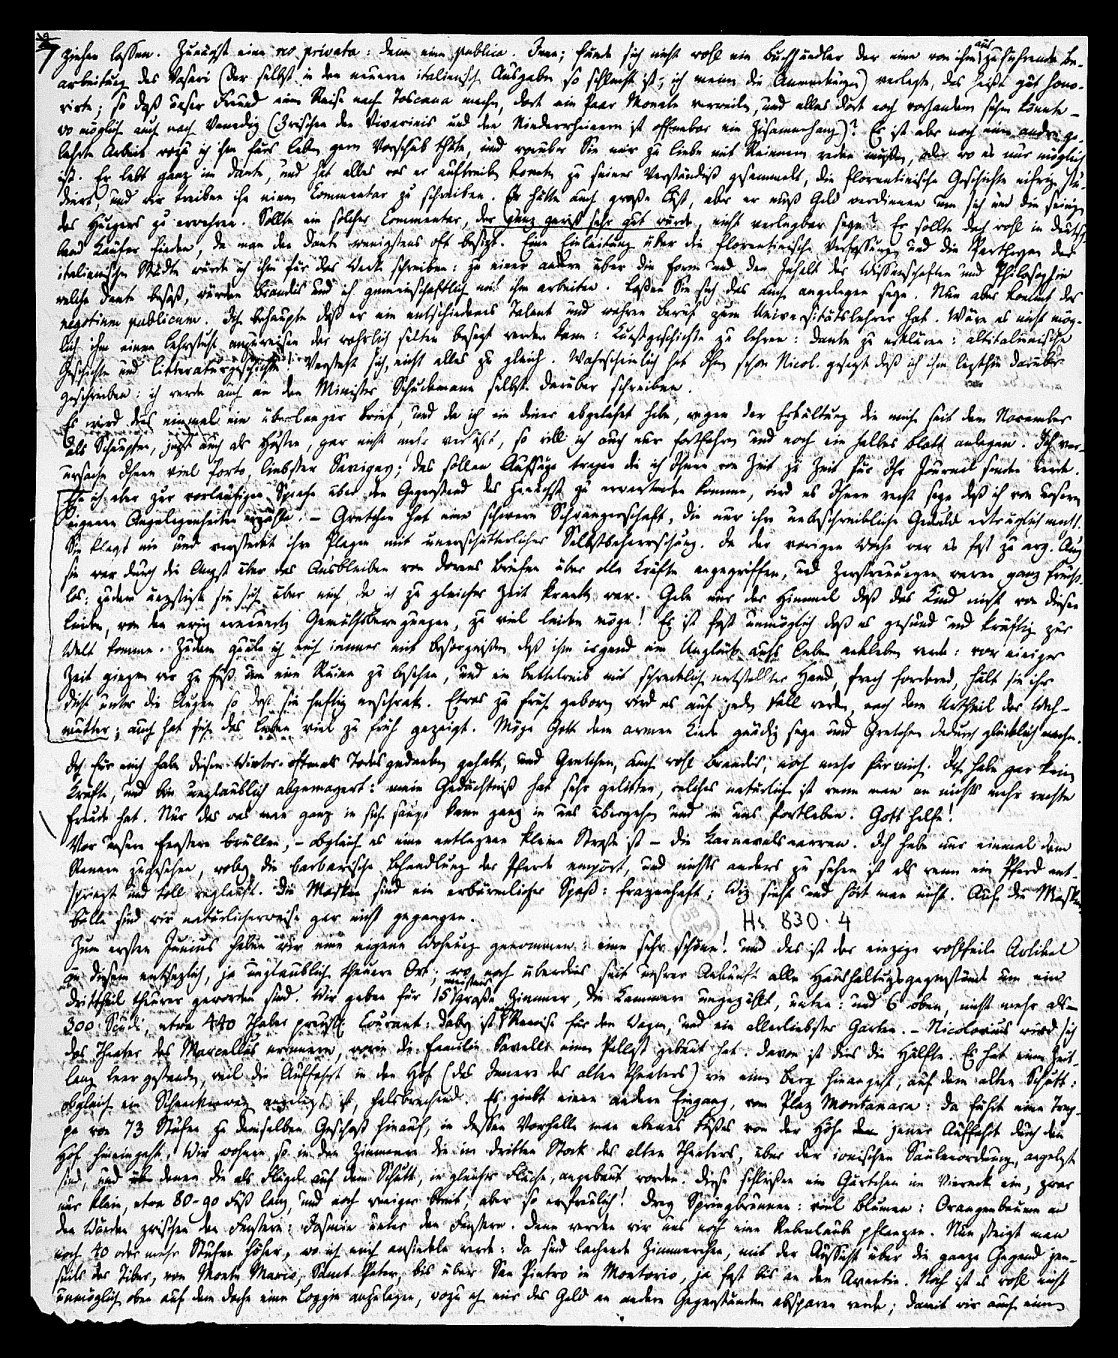 ziehen lassen. Zunächst eine res privata: dann eine publica. Jene; fände sich nicht wohl ein Buchhändler der eine von ihm auszuführende Be-
arbeitung des Vasari (der selbst in den neueren italienisch. Ausgaben so schlecht ist; ich meine die Anmerkungen) verlegte, das heißt gut hono-
rirte; so daß unser Freund eine Reise nach Toscana machen, dort ein Paar Monate verweilen, und alles dort noch vorhandene sehen könnte –
wo möglich auch nach Venedig (zwischen den Vivarinis und den Niederrheinern ist offenbar ein Zusammenhang)? Es ist aber noch eine andre ge-
lehrte Arbeit wozu ich ihm fürs Leben gern Vorschub thäte, und worüber Sie mir zu Liebe mit Reimern reden müßten, wo es nur möglich
ist. Er lebt ganz im Dante, und hat alles was er auftreiben konnte zu seinem Verständniß gesammelt, die florentinische Geschichte eifrig stu-
diert, und wir treiben ihn einen Commentar zu schreiben. Er hätte auch große Lust, aber er muß Geld verdienen um sich und die seinigen
des Hungers zu erwehren. Sollte ein solcher Commentar, der ganz gewiß sehr gut würde, nicht verlegbar seyn? Er sollte doch wohl in Deutsch-
land Käufer finden, da man den Dante wenigstens oft besizt. Eine Einleitung über die florentinische Verfassung und die Partheyen der
italienischen Städte würde ich ihm für das Werk schreiben: zu einer andern über die Form und den Inhalt der Wissenschaften und Philosophie
welche Dante besaß, würden Brandis und ich gemeinschaftlich mit ihm arbeiten. Lassen Sie sich das auch angelegen seyn. Nun aber kommt das
negotium publicum. Ich behaupte daß er ein entschiedenes Talent und wahren Beruf zum Universitätslehrer hat. Wäre es nicht mög-
lich ihm einen Lehrstuhl anzuweisen der wahrlich selten besezt werden kann: Kunstgeschichte zu lehren: Dante zu erklären: altitalienische
Geschichte und Litteraturgeschichte? Versteht sich, nicht alles zu gleich. Wahrscheinlich hat Ihnen schon Nicol. gesagt daß ich ihm lezthin darüber
geschrieben: ich werde auch an den Minister Schuckmann selbst darüber schreiben.
Es wird dies einmal ein überlanger Brief, und da ich ein abgelehnt habe, wegen der Erkältung die mich seit dem November
als Schnupfen, jezt auch als Husten, gar nicht mehr verläßt, so will ich auch nur fortfahren und noch ein halbes Blatt anlegen. Ich ver-
ursache Ihnen viel Porto, liebster Savigny; das sollen Aufsäze tragen die ich Ihnen von Zeit zu Zeit für Ihr Journal senden werde.
Ehe ich aber zur vorläufigen Sprache über den Gegenstand des zunächst zu erwartenden komme, wird es Ihnen recht seyn daß ich von unsern
eigenen Angelegenheiten erzähle. – Gretchen hat eine schwere Schwangerschaft, die nur ihre unbeschreibliche Geduld erträglich macht.
Sie klagt nie und versteckt ihre Plagen mit unerschütterlicher Selbstbeherrschung. In der vorigen Woche war es fast zu arg. Auch
sie war durch die Angst über das Ausbleiben von Dorens Briefen über alle Kräfte angegriffen, und Zerstreuungen waren ganz frucht-
los; zudem ängstigte sie sich über mich da ich zu gleicher Zeit krank war. Gebe uns der Himmel daß das Kind nicht von diesen
Leiden, von den ewig erneuerten Gemüthsbewegungen, zu viel leiden möge! Es ist fast unmöglich daß es gesund und kräftig zur
Welt komme. Zudem quäle ich mich immer mit Besorgnissen daß ihm irgend ein Unglück aufs Leben ankleben werde: vor einiger
Zeit gingen wir zu Fuß um eine Ruine zu besehen, und ein Bettelweib mit schrecklich entstellter Hand, frech fordernd, hält sie ihr
dicht unter die Augen so daß sie heftig erschrak. Etwas zu früh geboren wird es auf jeden Fall werden, nach dem Urtheil der Weh-
mutter; auch hat sich das Leben viel zu früh gezeigt. Möge Gott dem armen Kinde gnädig seyn und Gretchen dadurch glücklich machen.
Ich für mich habe diesen Winter oftmals Todesgedanken gehabt, und Gretchen, auch wohl Brandis, noch mehr für mich. Ich habe gar keine
Kräfte, und bin unglaublich abgemagert: mein Gedächtniß hat sehr gelitten, welches natürlich ist wenn man an nichts mehr rechte
Freude hat. Nur das was man ganz in sich saugt kann ganz in uns übergehn und in uns fortleben. Gott helfe!
Vor unsern Fenstern brüllen, – obgleich es nur eine entlegene kleine Straße ist – die Karnevalsnarren. Ich habe nur einmal dem
Rennen zugesehen, wobey die barbarische Behandlung der Pferde empört, und nichts anders zu sehen ist als wenn ein Pferd ent-
springt und toll wegläuft. Die Masken sind ein erbärmlicher Spaß: frazenhaft; Wiz sieht und hört man nicht. Auf die Masken-
bälle sind wir natürlicherweise gar nicht gegangen.
Hs 830.4
Zum ersten Junius haben wir eine eigene Wohnung genommen: eine sehr schöne! und das ist der einzige wohlfeile Artikel
in diesem entsezlich, ja unglaublich theuren Ort, wo noch überdies seit unsrer Ankunft alle Haushaltungsgegenstände um ein
Drittheil theurer geworden sind. Wir geben für 15 meistens große Zimmer, die Kammern ungezählt, unten: und 6 oben, nicht mehr als –
300 Scudi, etwa 440 Thaler preuß. Courant: dabey ist Remise für den Wagen, und ein allerliebster Garten. – Nicolovius wird sich
des Theater des Marcellus erinnern, worin die Familie Savelli einen Pallast gebaut hat: davon ist dies die Hälfte. Es hat eine Zeit-
lang leer gestanden, weil die Auffahrt in den Hof (das Innere des alten Theaters) wie einen Berg hinangeht, auf dem alten Schutt:
obgleich ein Schneckenweg angelegt ist, halsbrechend. Es giebt einen andern Eingang, vom Plaz Montanara: da führt eine Trep-
pe von 73 Stufen zu demselben Geschoß hinauf, in dessen Vorhalle man ebenes Fußes von der Höhe jener Auffahrt durch den
Hof hineingeht. Wir wohnen so in den Zimmern die im dritten Stock des alten Theaters, über der ionischen Säulenordnung, angelegt
sind, und in denen die als Flügel auf dem Schutt, in gleicher Fläche, angebaut worden: diese schließen ein Gärtchen im Viereck ein, zwar
nur klein, etwa 80-90 Fuß lang, und noch weniger breit, aber so erfreulich! Drey Springbrunnen: viel Blumen: Orangenbäume an
den Wänden zwischen den Fenstern: Jasmin unter den Fenstern. Dann werden wir uns noch eine Rebenlaube pflanzen. Nun steigt man
noch 40 oder mehr Stufen höher, wo ich mich ansiedeln werde: da sind lachende Zimmerchen, mit der Aussicht über die ganze Gegend jen-
seits der Tiber, von Monte Mario, Sanct Peter, bis über San Pietro in Montorio, ja fast bis an den Aventin. Noch ist es wohl nicht
unmöglich oben auf dem Dache eine Loggie anzulegen, wozu ich mir das Geld an andern Gegenständen absparen werde; damit wir auch einen